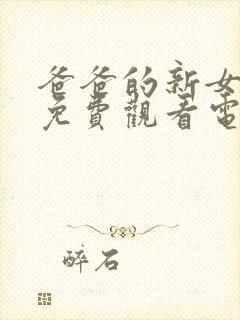 爸爸的新女
免費觀看電
醉石